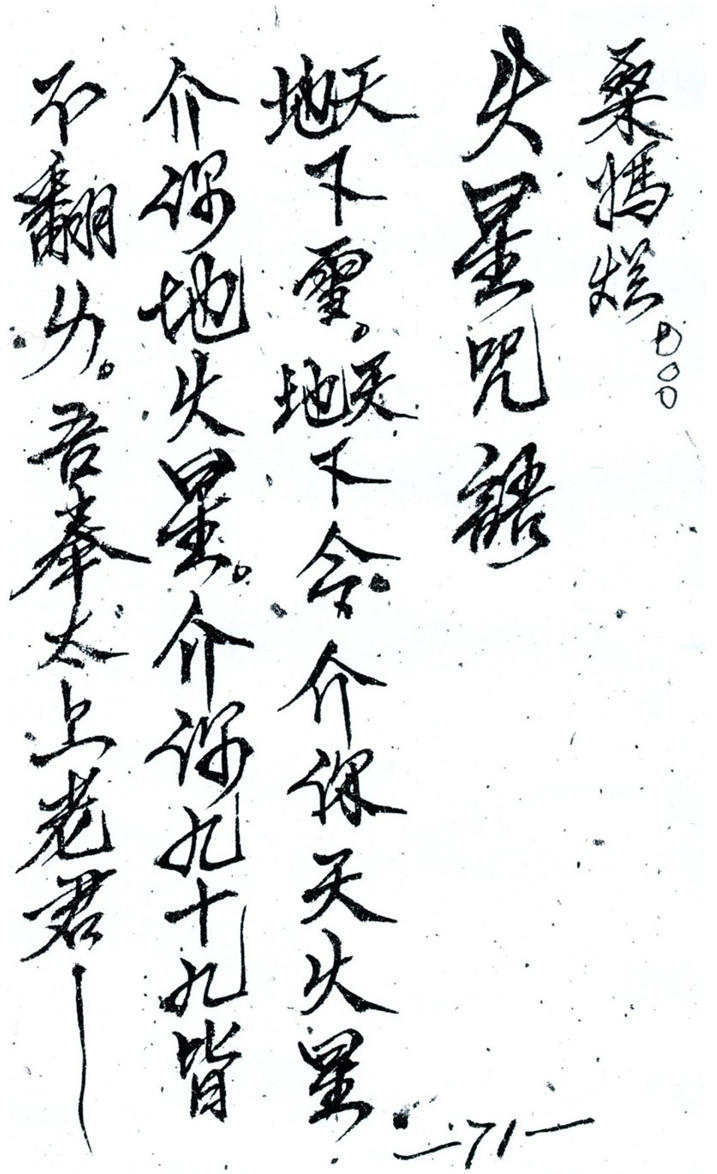 桑媽炵。
失星咒語
天地下雪。天地下令介保天失星
介你地失星。介你九十九皆
不翻力。吾奉太上老君
—71—